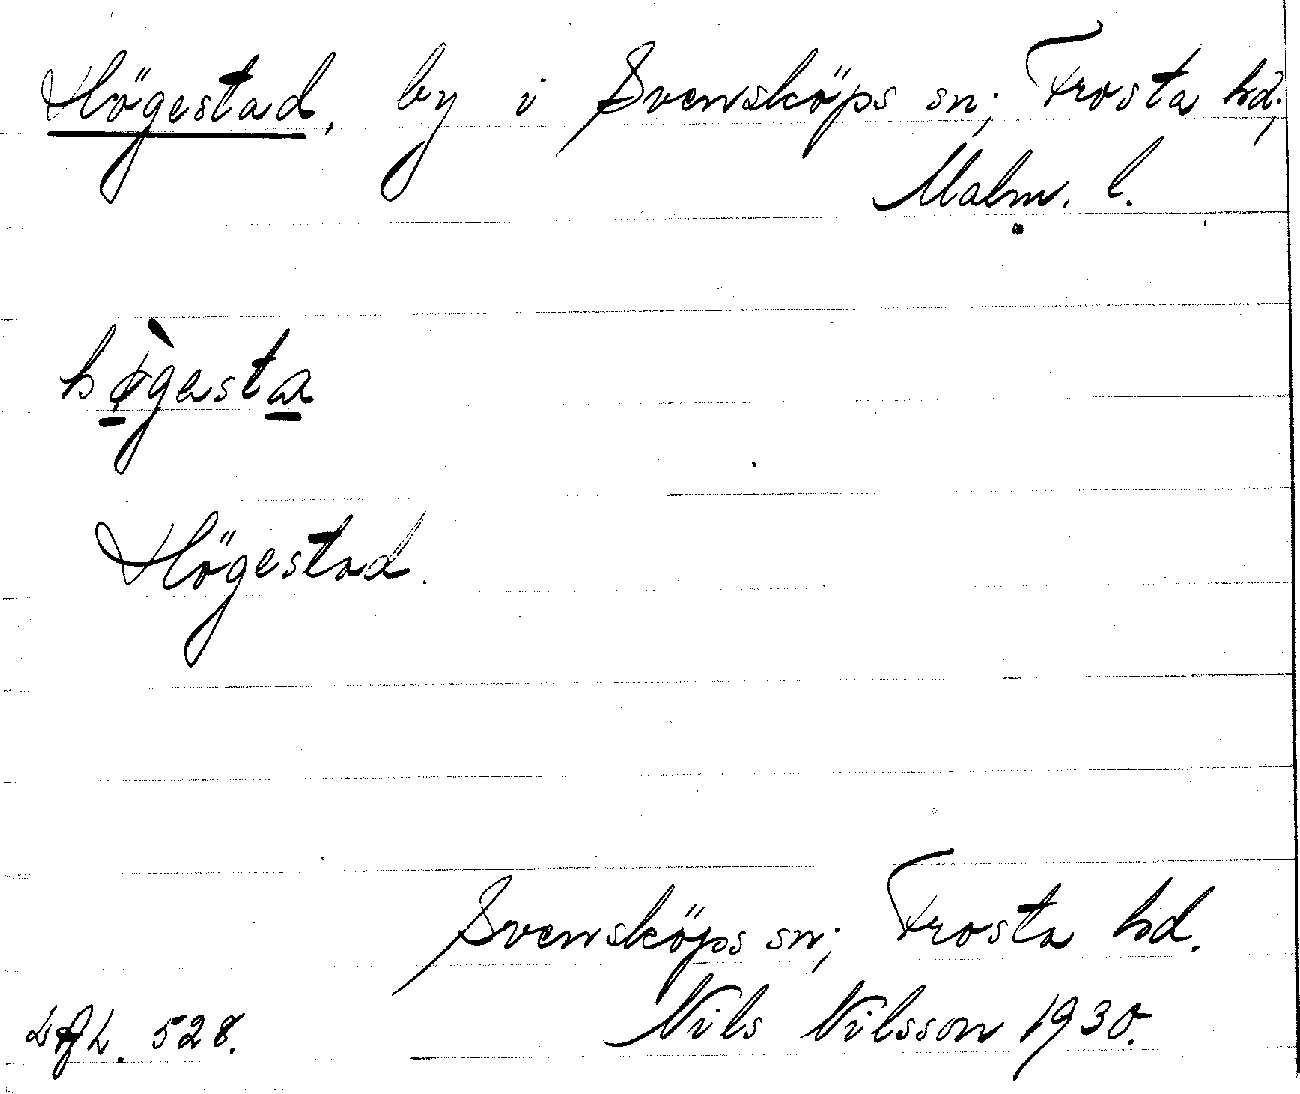 Högestad, by i Svensköps sn; Frosta hd;
Malm. l.
hø̀gesta
Högestad.
Svensköps sn; Frosta hd.
528. Nils Nilsson 1930.